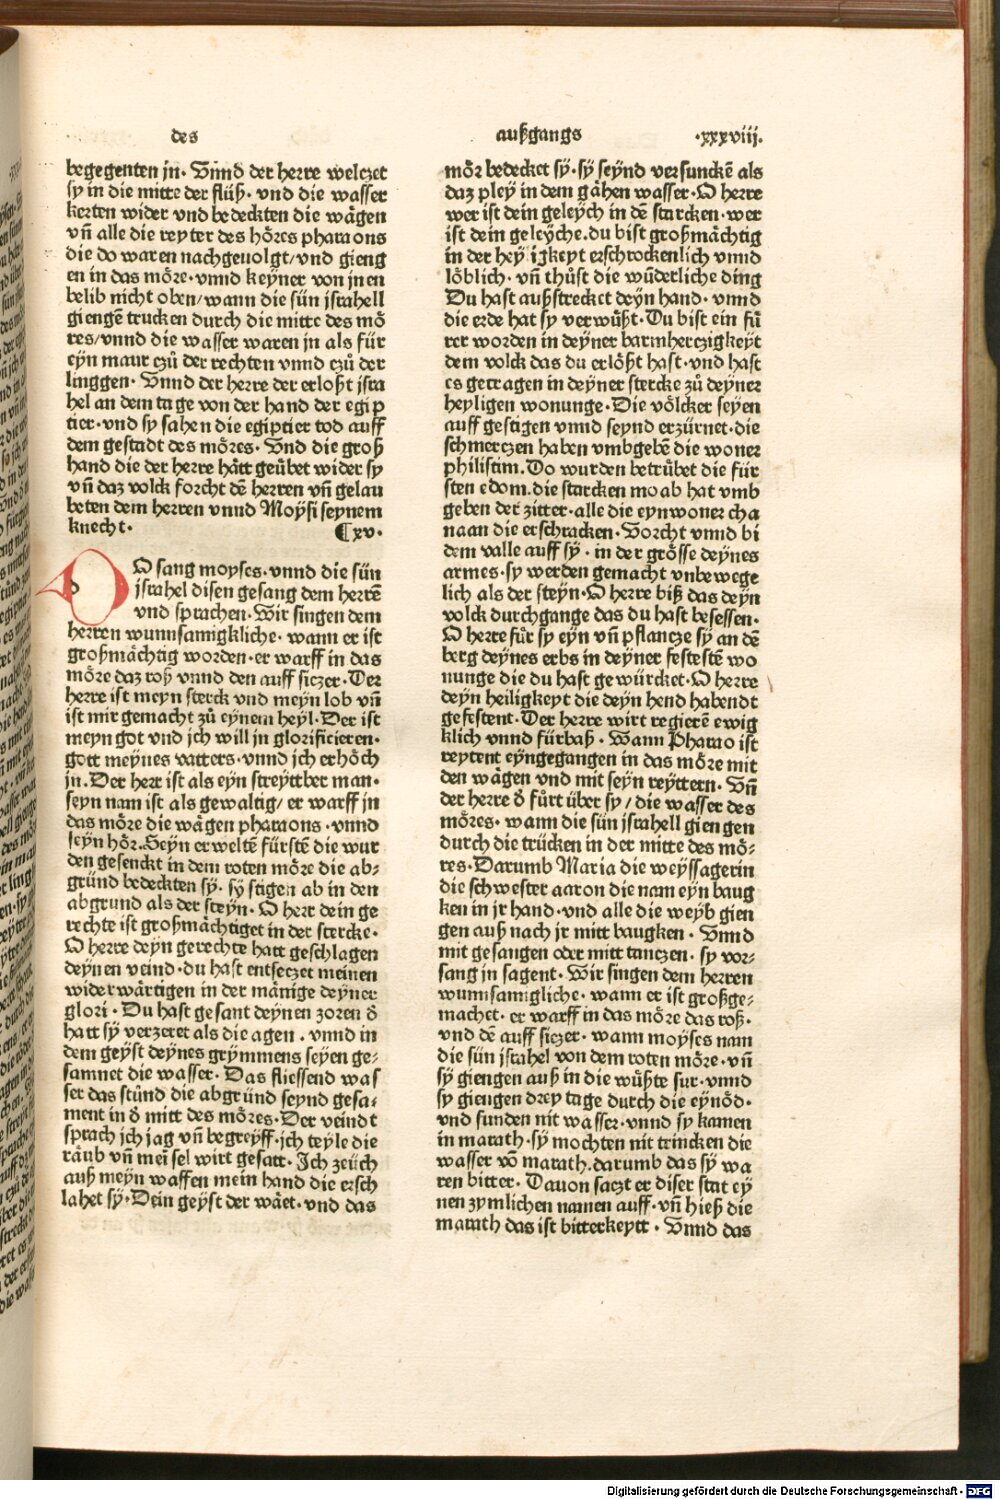 des außgangs ·xxxviij.
begegenten jn· Vnnd der herre welczet
sy in die mitte der flüß· vnd die wasser
kerten wider vnd bedeckten die wägen
vñ alle die reyter des höres pharaons
die do waren nachgeuolgt/vnd gieng
en in das möre·vnnd keyner von jnen
belib nicht oben/wann die sün israhell
giengē trucken durch die mitte des mö
res/vnnd die wasser waren jn als für
eyn maur czů der rechten vnnd czů der
linggen· Vnnd der herre der erloßt isra
hel an dem tage von der hand der egip
tier·vnd sy sahen die egiptier tod auff
dem gestadt des möres· Vnd die groß
hand die der herre hätt geübet wider sy
vñ daz volck forcht dē herren vñ gelau
beten dem herren vnnd Moysi seynem
knecht· ¶xv·
DO sang moyses·vnnd die sün
israhel disen gesang dem herrē
vnd sprachen·Wir singen dem
herren wunnsamigkliche·wann er ist
großmächtig worden·er warff in das
möre daz roß vnnd den auff siczer·Der
herre ist meyn sterck vnd meyn lob vñ
ist mir gemacht zů eynem heyl·Der ist
meyn got vnd jch will jn glorificieren·
gott meynes vatters·vnnd jch erhöch
jn·Der herr ist als eyn streyttber man·
seyn nam ist als gewaltig/er warff jn
das möre die wägen pharaons·vnnd
seyn hör·Seyn erweltē fürstē die wur
den gesenckt in dem roten möre die ab⸗
gründ bedeckten sÿ·sÿ stigen ab in den
abgrund als der steyn·O herr dein ge
rechte ist großmächtiget in der stercke·
O herre deyn gerechte hatt geschlagen
deynen veind·du hast entseczet meinen
widerwärtigen in der mänige deyner
glori·Du hast gesant deynen zoren ð
hatt sÿ verzeret als die agen·vnnd in
dem geyst deynes grymmens seyen ge⸗
samnet die wasser·Das fliessend was
ser das stůnd die abgründ seynd gesa⸗
ment in ð mitt des möres·Der veindt
sprach jch jag vñ begreyff·jch teyle die
raub vñ mei sel wirt gesatt·Ich zeüch
auß meyn waffen mein hand die ersch
lahet sÿ·Dein geyst der wäet·vnd das
mör bedecket sÿ·sÿ seynd versunckē als
daz pleÿ in dem gähen wasser·O herre
wer ist dein geleÿch in dē starcken·wer
ist dein geleÿche.du bist großmächtig
in der heyligkeyt erschrockenlich vnnd
löblich·vñ thůst die wūderliche ding
Du hast außstrecket deyn hand·vnnd
die erde hat sy verwůßt·Du bist ein fů
rer worden in deyner barmherczigkeyt
dem volck das du erlößt hast·vnd hast
es getragen in deyner stercke zů deyner
heyligen wonunge·Die völcker seyen
auff gestigen vnnd seynd erzürnet·die
schmerczen haben vmbgebē die woner
philistim.Do wurden betrübet die für
sten edom.die starcken moab hat vmb
geben der zitter·alle die eynwoner cha
naan die erschracken·Vorcht vnnd bi
dem valle auff sy·in der grösse deynes
armes·sy werden gemacht vnbewege
lich als der steyn·O herre biß das deyn
volck durchgange das du hast besessen·
O herre für sy eyn vñ pflancze sy an dē
berg deynes erbs in deyner festestē wo
nunge die du hast gewürcket·O herre
deyn heiligkeyt die deyn hend habendt
gefestent·Der herre wirt regierē ewig
klich vnnd fürbaß·Wann Pharao ist
reytent eyngegangen in das möre mit
den wägen vnd mit seyn reyttern·Vñ
der herre ð fůrt über sy/die wasser des
möres·wann die sün jsrahell giengen
durch die trücken in der mitte des mö⸗
res·Darumb Maria die weyssagerin
die schwester aaron die nam eyn baug
ken in jr hand·vnd alle die weyb gien
gen auß nach jr mitt baugken·Vnnd
mit gesangen oder mitt tanczen·sy vor⸗
sang jn sagent·Wir singen dem herren
wunnsamigliche·wann er ist großge⸗
machet·er warff in das möre das roß·
vnd dē auff siczer·wann moyses nam
die sün jsrahel von dem roten möre·vñ
sÿ giengen auß in die wůßte sur·vnnd
sy giengen drey tage durch die eynöd·
vnd funden nit wasser·vnnd sy kamen
in marath·sÿ mochten nit trincken die
wasser vō marath.darumb das sÿ wa
ren bitter·Dauon saczt er diser stat ey
nen zymlichen namen auff·vñ hieß die
marath das ist bitterkeytt·Vnnd das
Digitalisierung gefördert durch die Deutsche Forschungsgemeinschaft - DFG